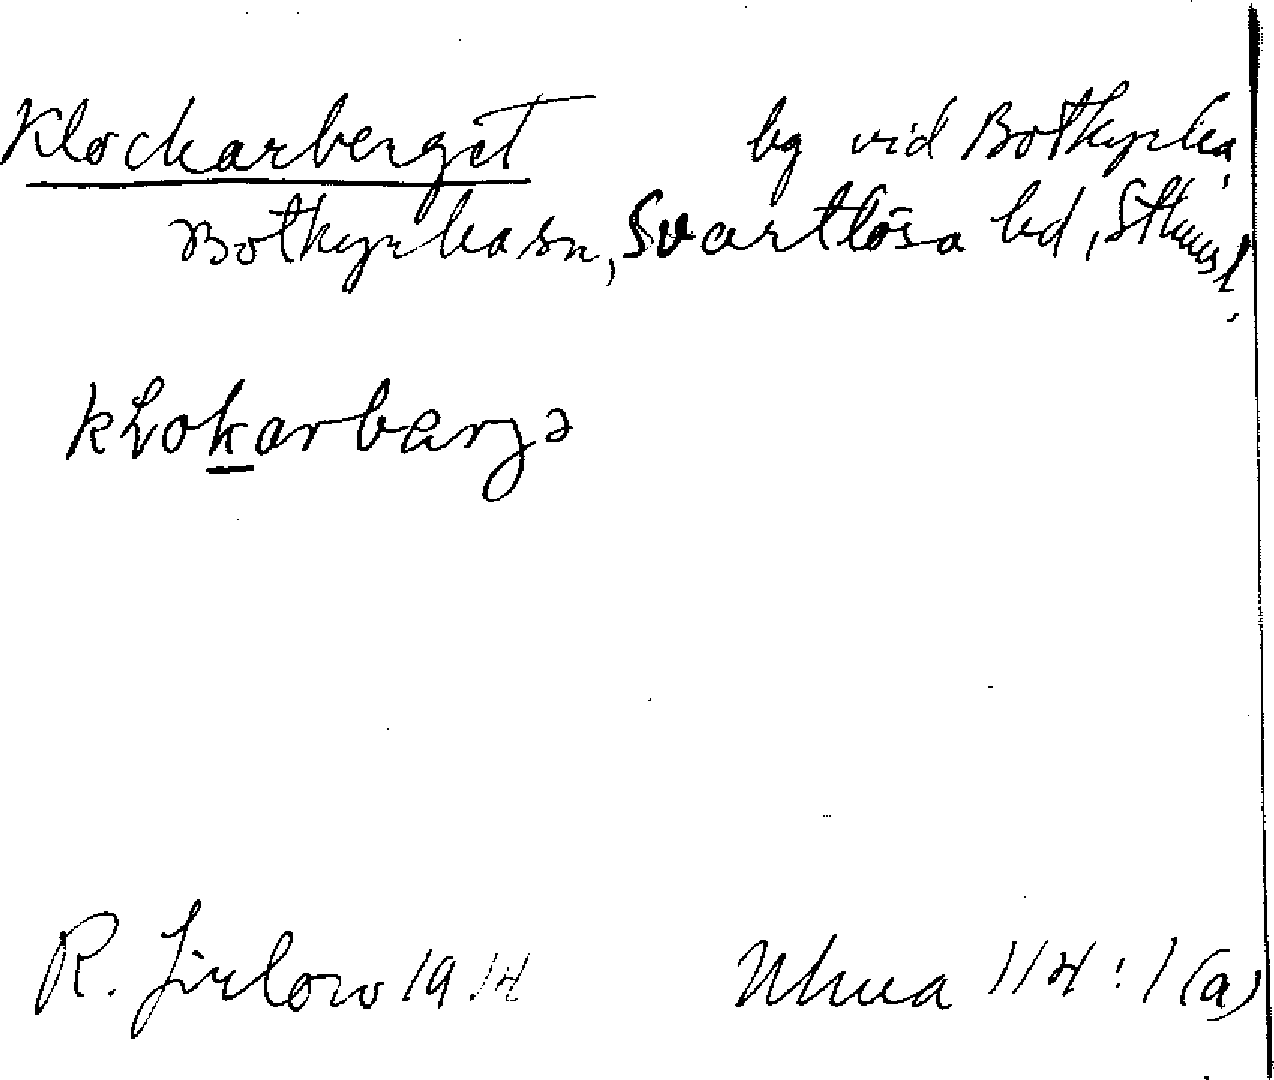 Klockarberget bg vid Botkyrka,
Botkyrka sn, Svartlösa hd, Sthms l.
kLokarbarjə
R. Jirlow 1914
(a)